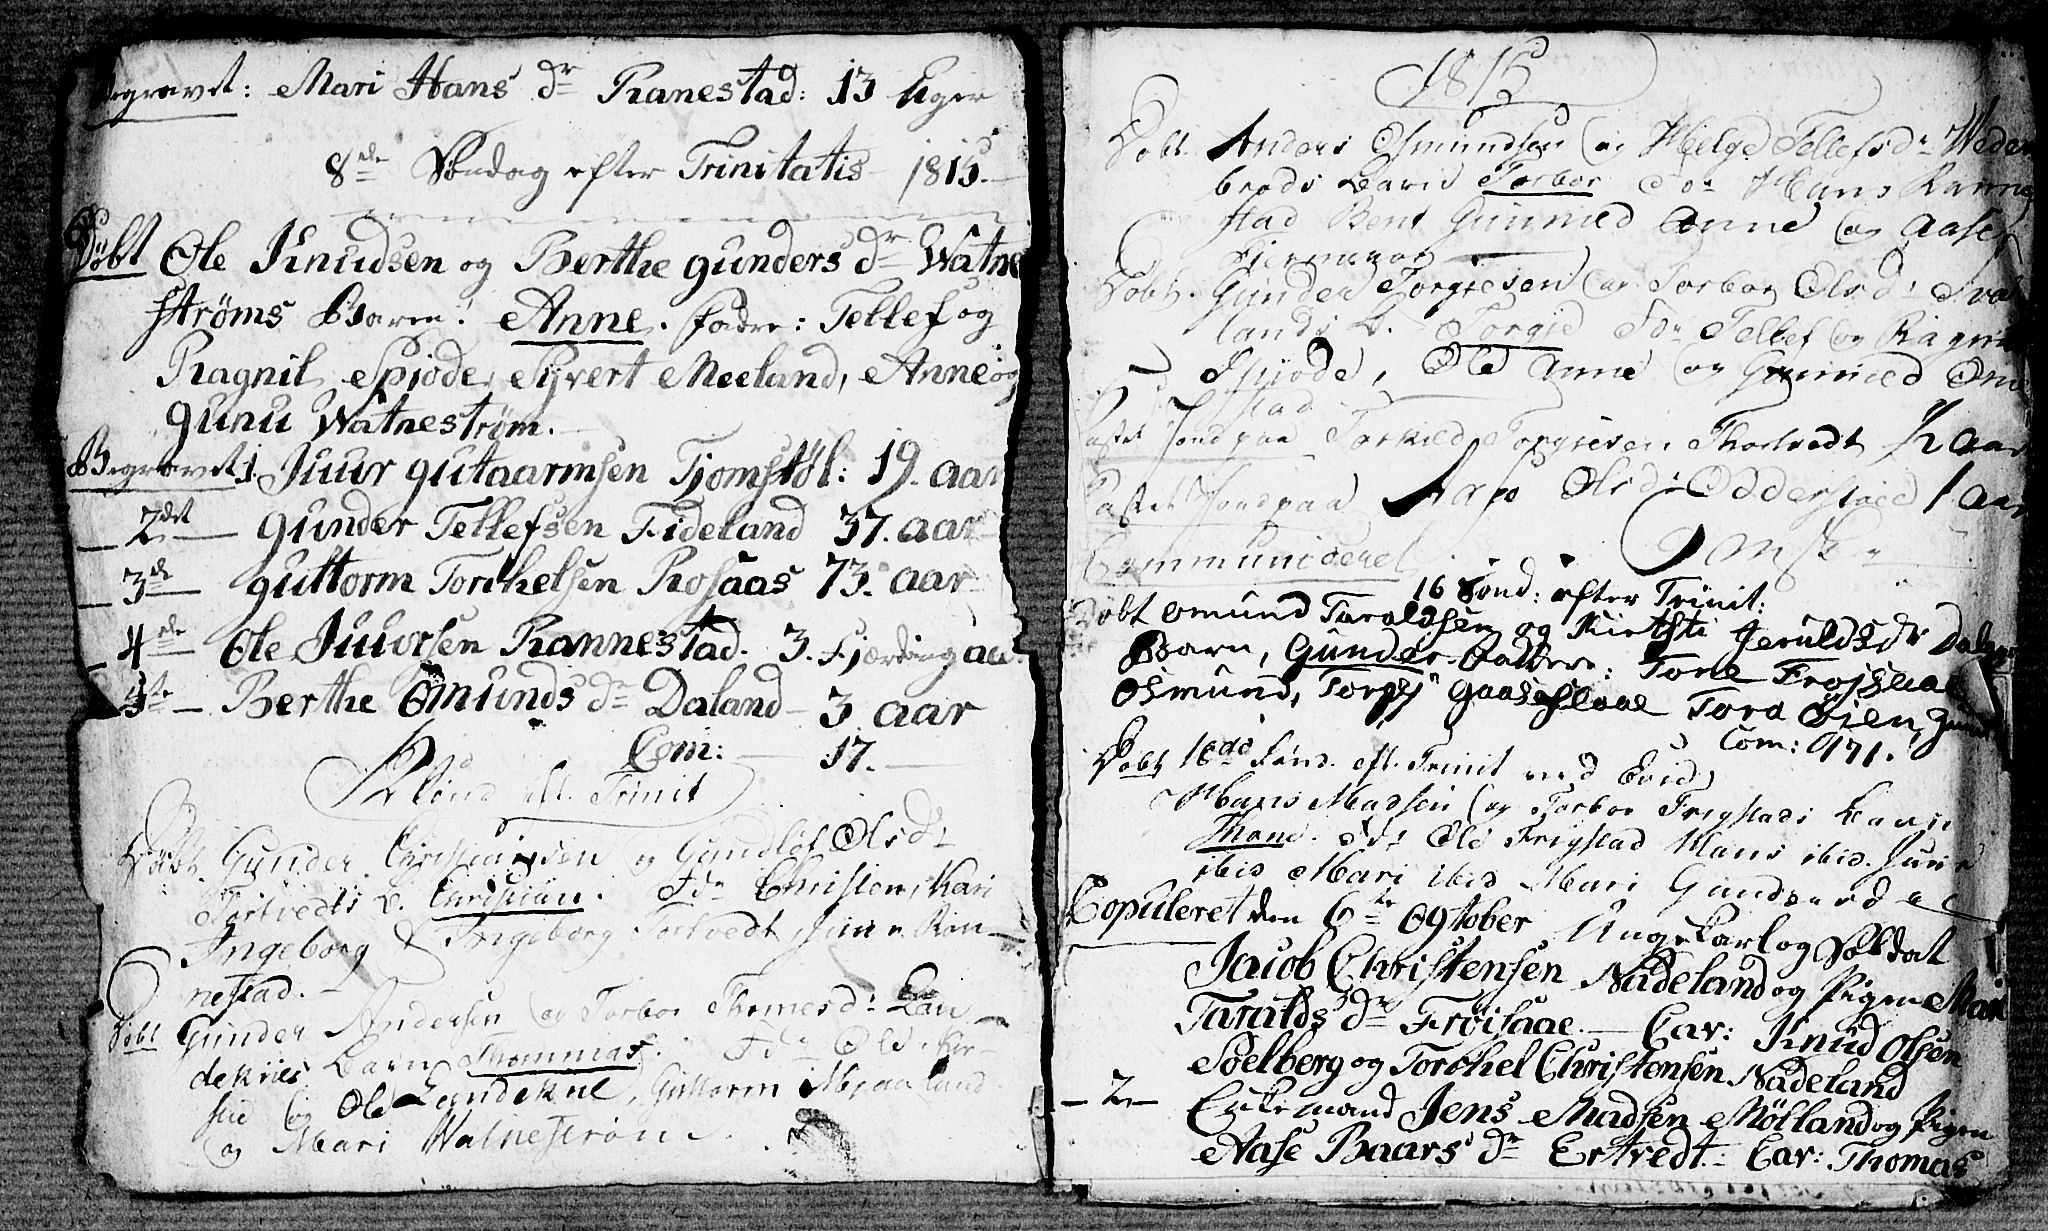 Begravet: Mari Hans dr Ranestad: 13 Uger
8de Søndag efter Trinitatis 1815.
Døbt Ole Knudsen og Berthe gunders dr Watne
strøms Baren: Anne. fadre: Tellef og
Ragnil Spiode, Syvert Meeland, Anne og
gunu Watnestrøm.
Begravet 1. Juur gutaarmsen Tjomstøl: 19. aar
2det gunder Tellefsen Fideland 37. aar
3de guttorm Torchelsen Rosaas 73. aar
4de Ole Juursen Rannestad. 3. Fjærding aa
5te Berthe Omunds dr Daland 3 aar
Com: 17.
Sönd eft. Trinit
Døbt. Gunder Christiansen og Gundlof Olsdr
Tortvedts B. Christian. Fdr Christen, Kari
Ingeborg & Ingeborg Tortvedt, Juur Ran
nestad.
Døbt Gunder Andersen og Torbor Thomesd: Lan
dekiles Barn Thommas. Fdr Ole
stad og Ole Landekiil, Guttorm Mjaaland
og Mari Watnestrøm.
1815
Døbt Anders Osmundsen og Helge Tellefsdr Weden
brods Barn Torbor Hans Ranne
stad Bent Gunnild Anne og Aase
Døbt. Gunder Torgiesen og Torbor Olsdr
lands B. Torgie Fdr Tellef og Ragnil
Spiode, Ole Anne og Gunnild Om
stad
Kastet Jord paa Torkild Torgiesen Thortvedt 1/2 aar
Kastet Jord paa Olsdr Odderstøed 1 aar
Communiceret
16 Sond: efter Trinit:
Døbt omund Taraldsen og Kirtsti Jeruldsdr Dalan
Barn, Gunder. Faddere: Tone Frøisaae
Osmund, Torgej Gaaseflaae Tora Øien, gun
Com: 971.
Døbt 16de Sønd. eft. Trinit ved Evie
Hans Madsen og Torbor Frigstads Barn
Thone. Fdr Ole Frigstad Hans ibid. Juur
ibid Mari ibid Mari Gundersdal
Copuleret den 6te October Ungekarl og Soldat
Jacob Christensen Nådeland og Pigen Mari
Taralds dr Frøisaae. Cav: Knud Olsen
Soelberg og Torchel Christensen Nådeland
2 Enkemand Jens Madsen Mølland og Pigen
Aase Baars dr Ertvedt. Cav: Thomas